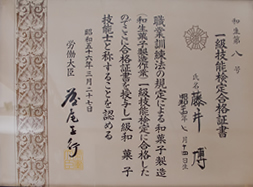 和生第八号
一級技能検定合格証書
氏名 藤井 博
職業訓練法の規定による和菓子製造
(和生菓子製造作業)一級技能検定に合格した
のでここに合格証書を授与し一級和菓子
技能士と称することを認める
昭和五十六年三月二十七日
労働大臣